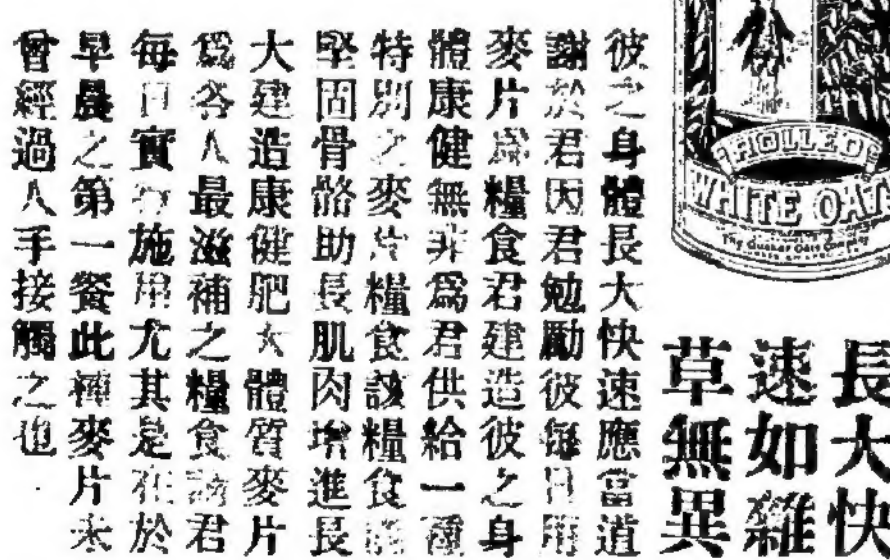 ROLLED
WHITE OATS
The Quaker Oats Company
長大快
速如雜
草無異
彼之身體長大快速應當道
謝於君因君勉勵彼每日用
麥片爲糧食君建造彼之身
體康健無非爲君供給一種
特別之麥片糧食該糧食能
堅固骨骼助長肌肉增進長
大建造康健肥大體質麥片
爲各人最滋補之糧食請君
每日實行施用尤其是在於
早晨之第一餐此種麥片未
曾經過人手接觸之也